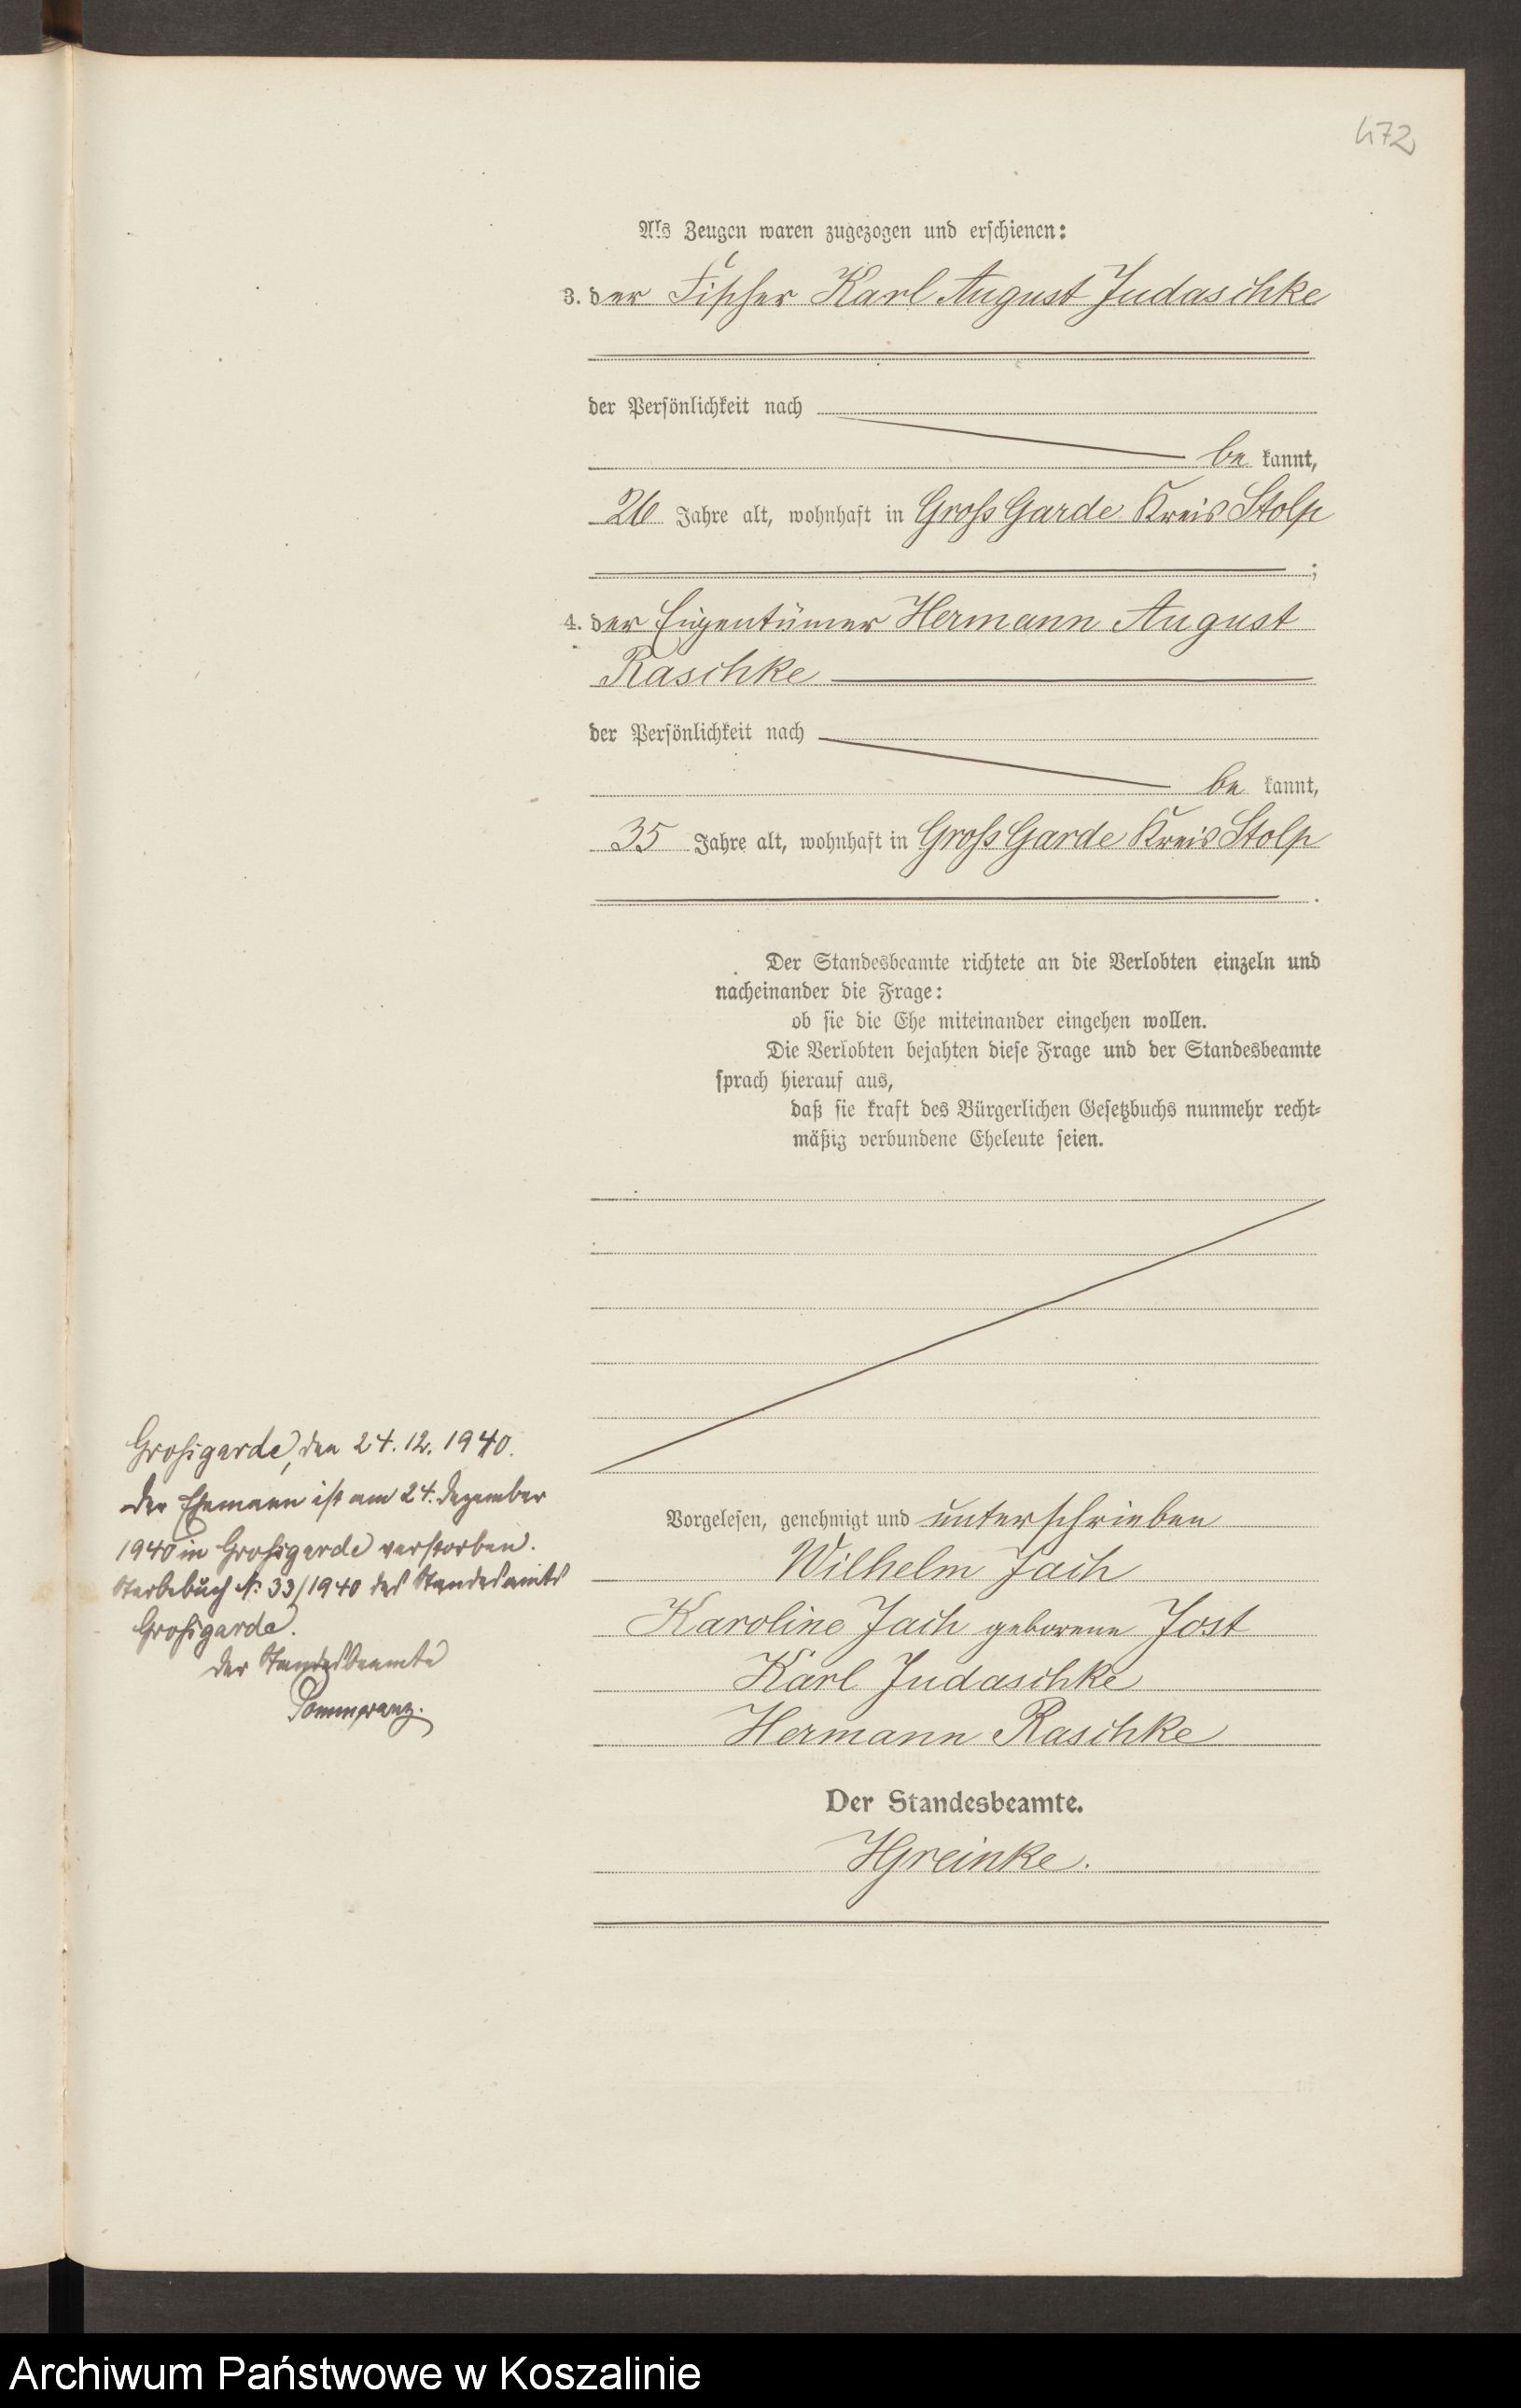 472
Als Zeugen waren zugezogen und erschienen:
3. der Fischer Karl August Judaschke
der Persönlichkeit nach
be kannt,
26 Jahre alt, wohnhaft in Groß Garde Kreis Stolp
;
4. der Eigentümer Hermann August
Raschke
der Persönlichkeit nach
be kannt,
35 Jahre alt, wohnhaft in Groß Garde Kreis Stolp
.
Der Standesbeamte richtete an die Verlobten einzeln und
nacheinander die Frage:
ob sie die Ehe miteinander eingehen wollen.
Die Verlobten bejahten diese Frage und der Standesbeamte
sprach hierauf aus,
daß sie kraft des Bürgerlichen Gesetzbuchs nunmehr recht-
mäßig verbundene Eheleute seien.
Großgarde, den 24.12.1940.
Der Ehemann ist am 24. Dezember
1940 in Großgarde verstorben.
Sterbebuch Nr. 33/1940 des Standesamts
Großgarde.
Der Standesbeamte
Pommeranz.
Vorgelesen, genehmigt und unterschrieben
Wilhelm Jach
Karoline Jach geborene Jost
Karl Judaschke
Hermann Raschke
Der Standesbeamte.
HGreinke.
Archiwum Państwowe w Koszalinie